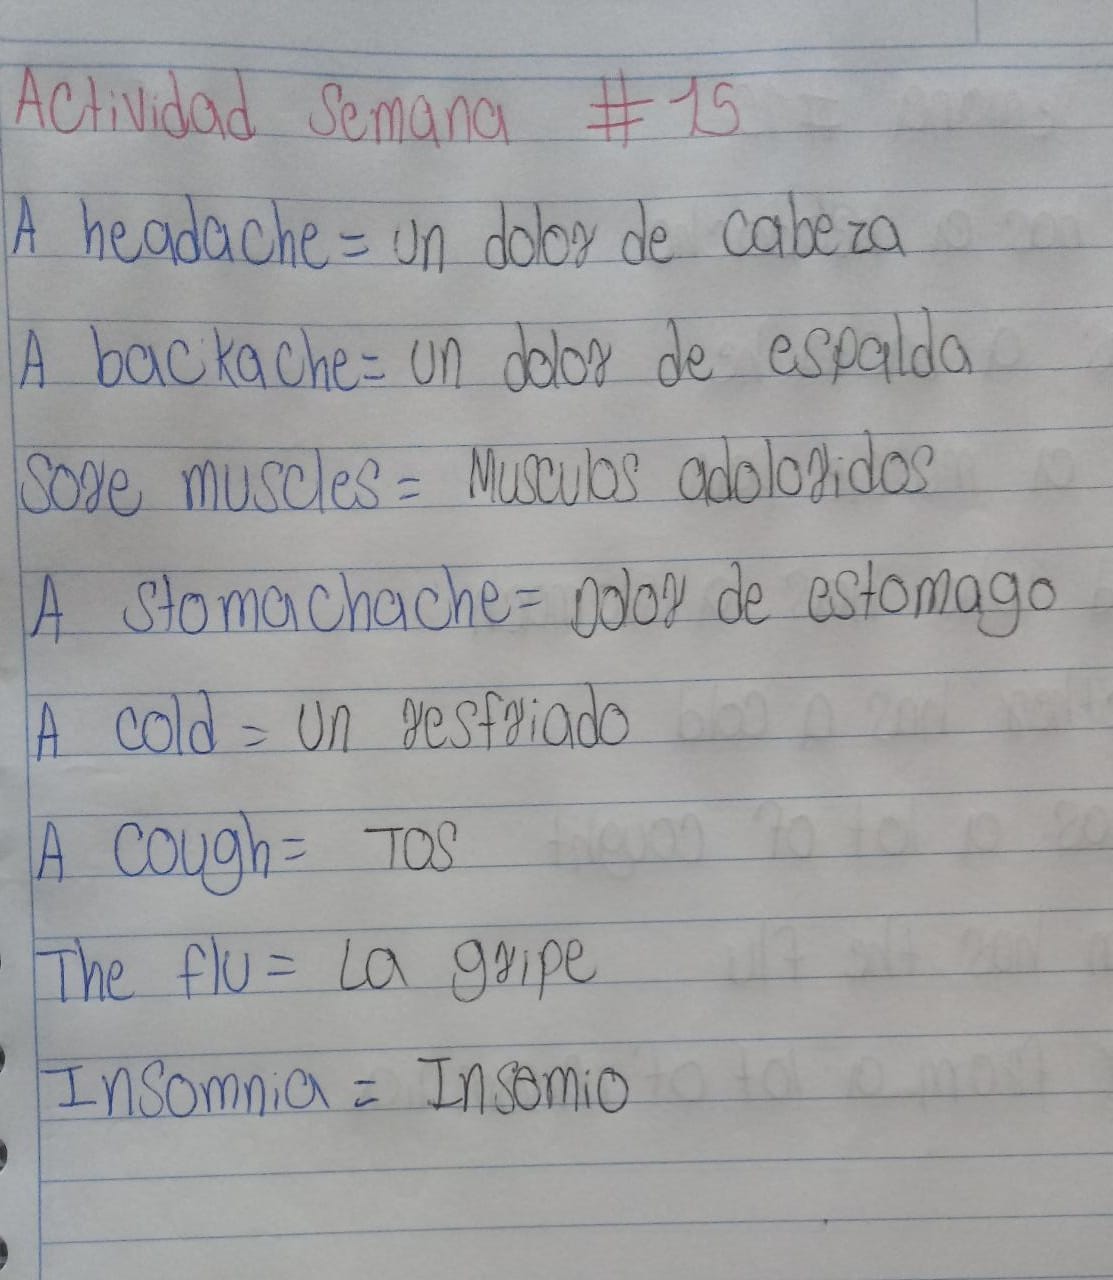 Actividad Semana #15
A headache = un dolor de cabeza
A backache = un dolor de espalda
Sore muscles = Musculos adoloridos
A stomachache = Dolor de estomago
A cold = un resfriado
A cough = Tos
The flu = La gripe
Insomnia = Insomio